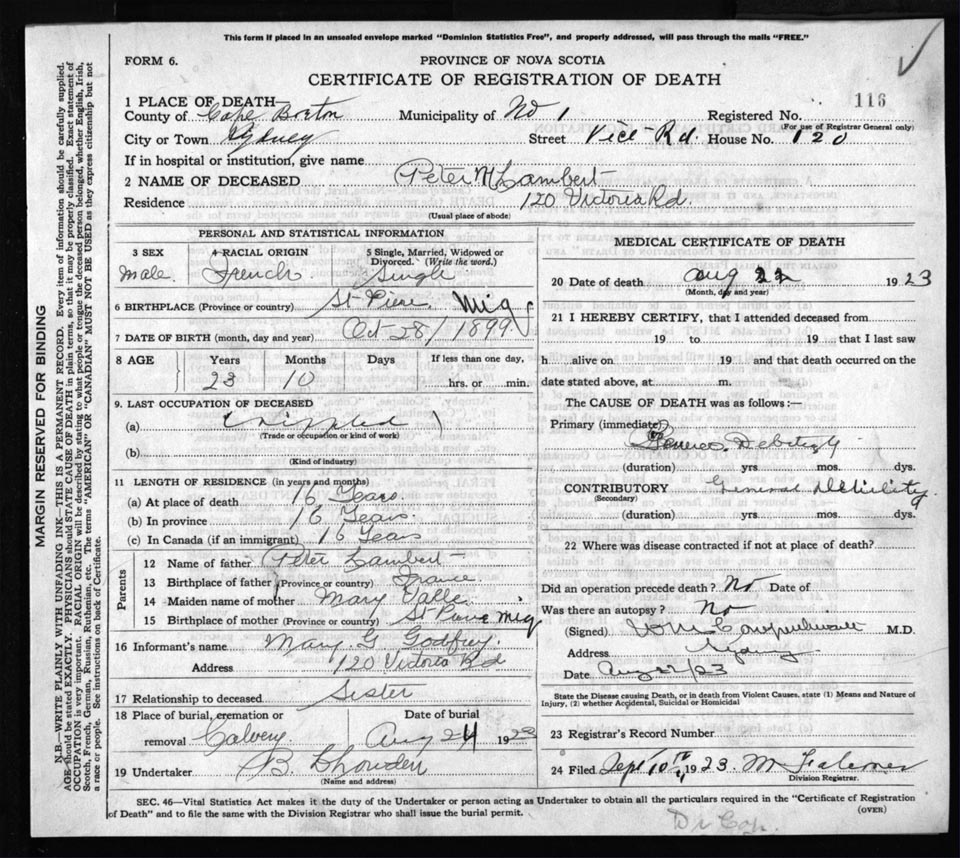 This form if placed in an unsealed envelope marked "Dominion Statistics Free", and properly addressed, will pass through the mails "FREE."
FORM 6.
PROVINCE OF NOVA SCOTIA
CERTIFICATE OF REGISTRATION OF DEATH
116
1 PLACE OF DEATH—
County of Cape Breton Municipality of No 1 Registered No.
(For use of Registrar General only)
City or Town Sydney Street Vict Rd. House No. 120
If in hospital or institution, give name
2 NAME OF DECEASED Peter H Lambert
Residence 120 Victoria Rd.
(Usual place of abode)
PERSONAL AND STATISTICAL INFORMATION
3 SEX 4 RACIAL ORIGIN 5 Single, Married, Widowed or Divorced. (Write the word.)
Male. French Single
6 BIRTHPLACE (Province or country) St Piere Miq
7 DATE OF BIRTH (month, day and year) Oct 28/1899
8 AGE Years Months Days If less than one day,
23 10 hrs. or min.
9. LAST OCCUPATION OF DECEASED
(a) Crippled
(Trade or occupation or kind of work)
(b)
(Kind of industry)
11 LENGTH OF RESIDENCE (in years and months)
(a) At place of death 16 Years.
(b) In province 16 Years.
(c) In Canada (if an immigrant) 16 Years
Parents
12 Name of father Peter Lambert
13 Birthplace of father (Province or country) France.
14 Maiden name of mother Mary Valle
15 Birthplace of mother (Province or country) St Piere Miq
16 Informant's name Mary G Godfrey
Address 120 Victoria Rd
17 Relationship to deceased Sister
18 Place of burial, cremation or removal Calvery Date of burial Aug 24 1923
19 Undertaker B.
(Name and address)
MEDICAL CERTIFICATE OF DEATH
20 Date of death Aug 22 1923
(Month, day and year)
21 I HEREBY CERTIFY, that I attended deceased from
19 to 19 that I last saw
h alive on 19 and that death occurred on the
date stated above, at m.
The CAUSE OF DEATH was as follows:—
Primary (immediate)
Debility
(duration) yrs. mos. dys.
CONTRIBUTORY General Debility
(Secondary)
(duration) yrs. mos. dys.
22 Where was disease contracted if not at place of death?
Did an operation precede death? No Date of
Was there an autopsy? No
(Signed) M.D.
Address Sydney
Date Aug 22/23
State the Disease causing Death, or in death from Violent Causes, state (1) Means and Nature of Injury, (2) whether Accidental, Suicidal or Homicidal
23 Registrar's Record Number
24 Filed Sept 10th 1923
Division Registrar.
SEC. 46—Vital Statistics Act makes it the duty of the Undertaker or person acting as Undertaker to obtain all the particulars required in the "Certificate of Registration of Death" and to file the same with the Division Registrar who shall issue the burial permit.
(OVER)
Dr Cop.
MARGIN RESERVED FOR BINDING
N.B.—WRITE PLAINLY WITH UNFADING INK—THIS IS A PERMANENT RECORD. Every item of information should be carefully supplied.
AGE should be stated EXACTLY. PHYSICIANS should STATE CAUSE OF DEATH in plain terms, so that it may be properly classified. Exact statement of
OCCUPATION is very important. RACIAL ORIGIN will be described by stating to what people or tongue the deceased person belonged, whether English, Irish,
Scotch, French, German, Russian, Ruthenian, etc. The terms "AMERICAN" OR "CANADIAN" MUST NOT BE USED as they express citizenship but not
a race or people. See instructions on back of Certificate.